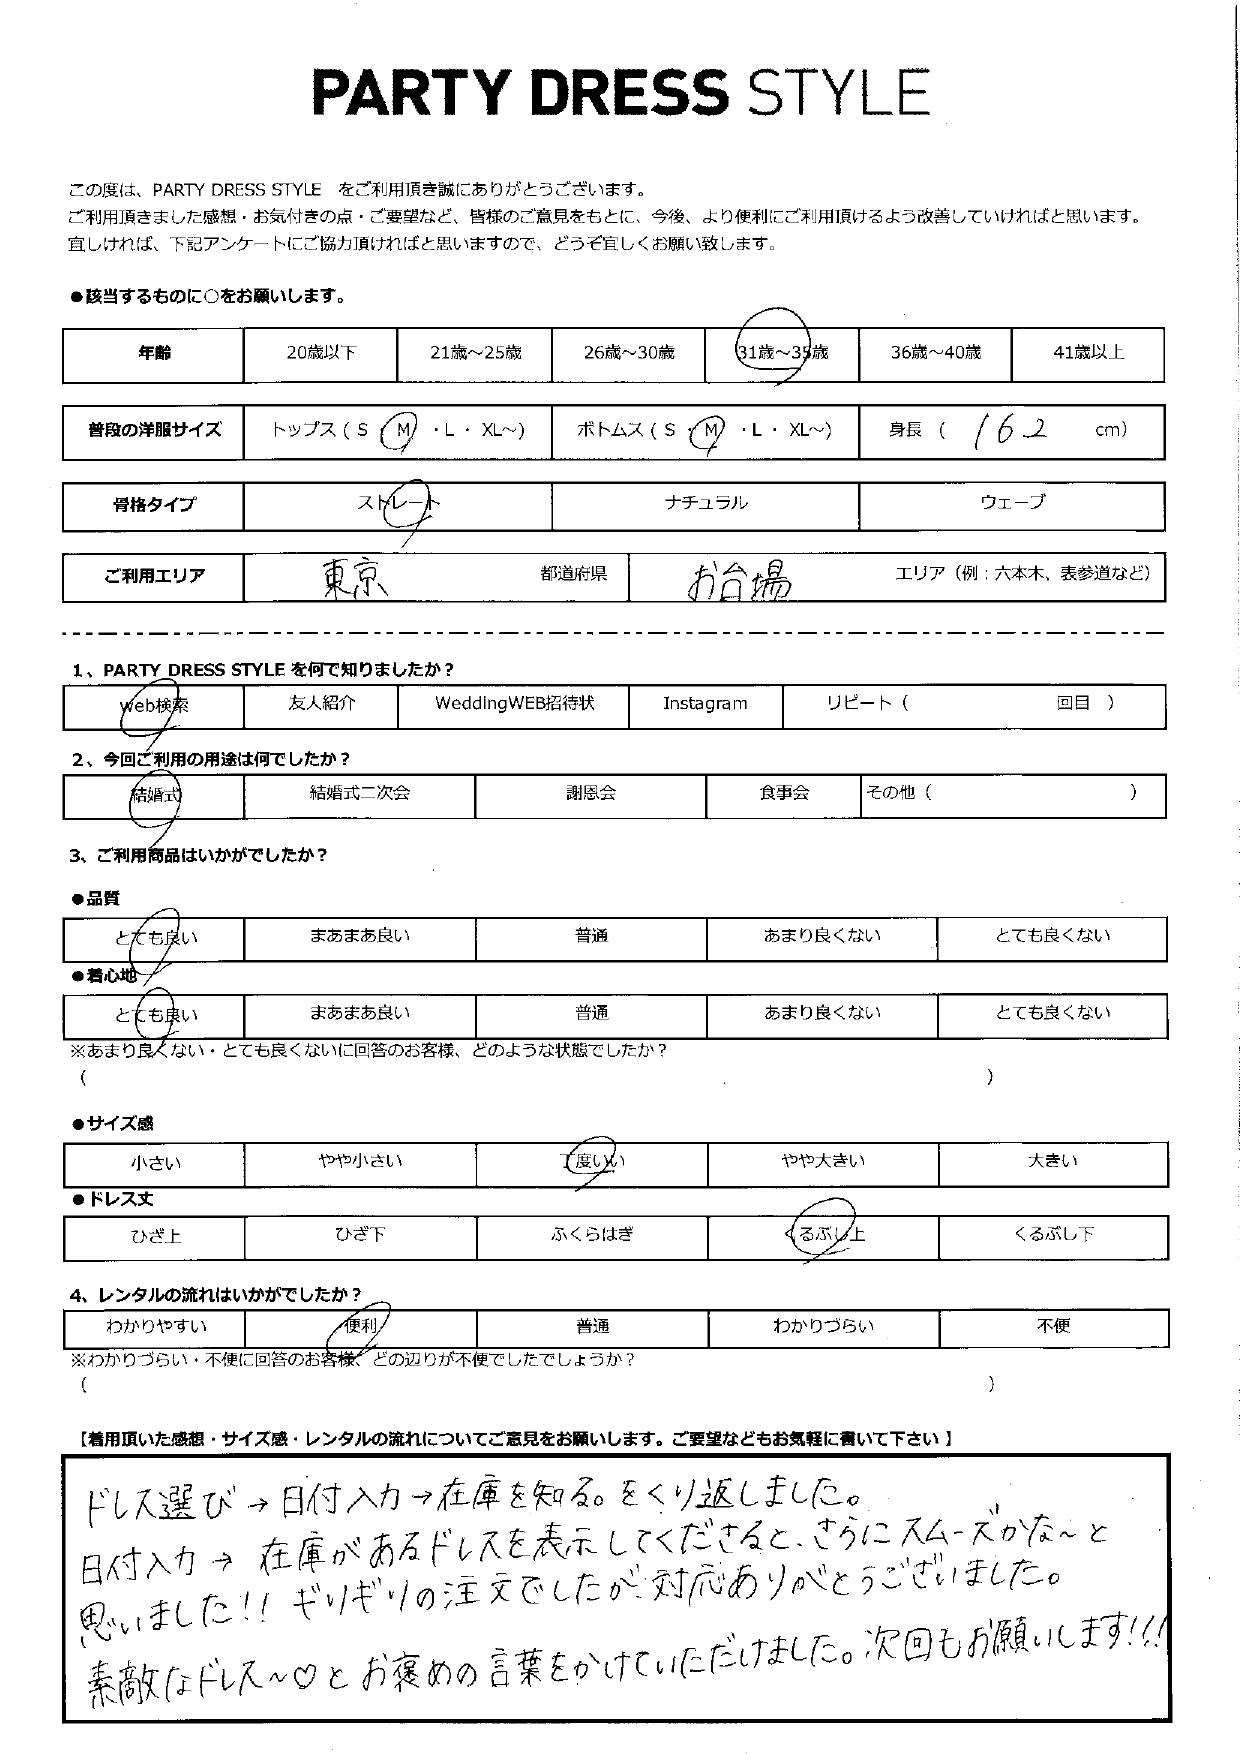 PARTY DRESS STYLE
この度は、PARTY DRESS STYLE　をご利用頂き誠にありがとうございます。
ご利用頂きました感想・お気付きの点・ご要望など、皆様のご意見をもとに、今後、より便利にご利用頂けるよう改善していければと思います。
宜しければ、下記アンケートにご協力頂ければと思いますので、どうぞ宜しくお願い致します。
●該当するものに○をお願いします。
年齢 20歳以下 21歳～25歳 26歳～30歳 31歳～35歳 36歳～40歳 41歳以上
普段の洋服サイズ トップス ( S ・ M ・L ・ XL～) ボトムス ( S ・ M ・L ・ XL～) 身長 ( 162 cm)
骨格タイプ ストレート ナチュラル ウェーブ
ご利用エリア 東京 都道府県 お台場 エリア（例：六本木、表参道など）
1、PARTY DRESS STYLE を何で知りましたか？
Web検索 友人紹介 WeddingWEB招待状 Instagram リピート（ 回目 ）
2、今回ご利用の用途は何でしたか？
結婚式 結婚式二次会 謝恩会 食事会 その他（ ）
3、ご利用商品はいかがでしたか？
●品質
とても良い まあまあ良い 普通 あまり良くない とても良くない
●着心地
とても良い まあまあ良い 普通 あまり良くない とても良くない
※あまり良くない・とても良くないに回答のお客様、どのような状態でしたか？
( )
●サイズ感
小さい やや小さい 丁度いい やや大きい 大きい
●ドレス丈
ひざ上 ひざ下 ふくらはぎ くるぶし上 くるぶし下
4、レンタルの流れはいかがでしたか？
わかりやすい 便利 普通 わかりづらい 不便
※わかりづらい・不便に回答のお客様、どの辺りが不便でしたでしょうか？
( )
【着用頂いた感想・サイズ感・レンタルの流れについてご意見をお願いします。ご要望などもお気軽に書いて下さい】
ドレス選び→日付入力→在庫を知る。をくり返しました。
日付入力→ 在庫があるドレスを表示してくださると、さらにスムーズかな～と
思いました!! ギリギリの注文でしたが、対応ありがとうございました。
素敵なドレス～♡とお褒めの言葉をかけていただけました。次回もお願いします!!!